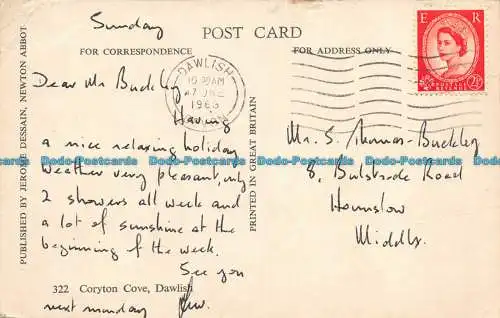 Sunday
POST CARD
FOR CORRESPONDENCE
FOR ADDRESS ONLY
E R
POSTAGE
REVENUE
2½D
DAWLISH
10 30AM
27 JNE
1966
DEVON
Dear Mr Buckley,
Having
a nice relaxing holiday
weather very pleasant, only
2 showers all week and
a lot of sunshine at the
beginning of the week.
See you
next monday
Mr. S. Thomas-Buckley
8, Bulstrode Road
Hounslow
Middlx.
322 Coryton Cove, Dawlish
PUBLISHED BY JEROME DESSAIN, NEWTON ABBOT
PRINTED IN GREAT BRITAIN
Dodo-Postcards Dodo-Postcards Dodo-Postcards Dodo-Postcards Dodo-Postcards Dodo-Postcards